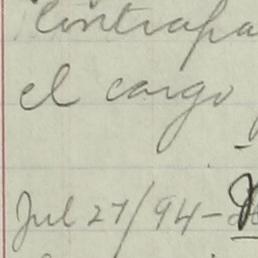 contrapa
el cargo
Jul 27/94-